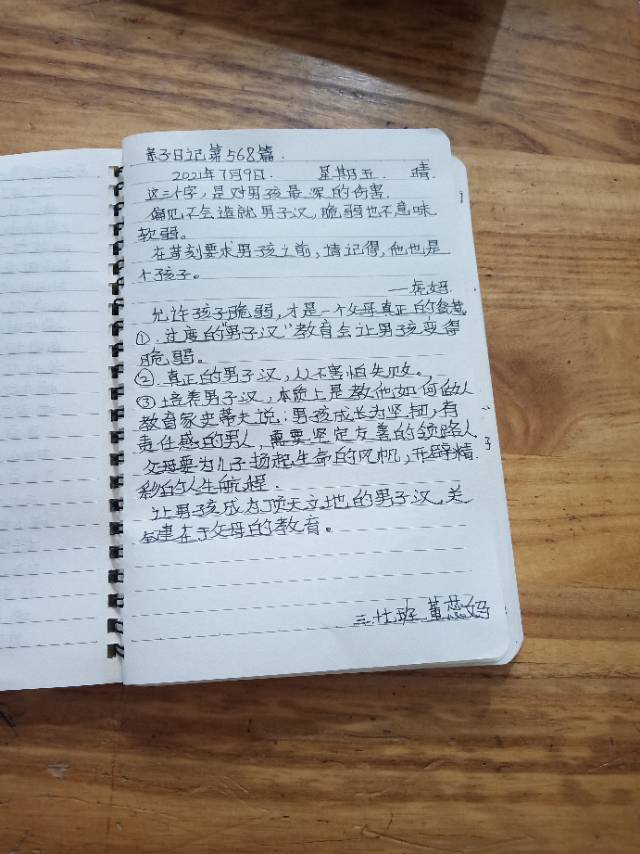 亲子日记第568篇.
2021年7月9日. 星期五. 晴.
这三个字,是对男孩最深的伤害.
偏见不会造就男子汉,脆弱也不意味
软弱。
在苛刻要求男孩之前,请记得,他也是
个孩子。
允许孩子脆弱,才是一个父母真正的
①.过度的"男子汉"教育会让男孩变得
脆弱。
②.真正的男子汉,从不害怕失败。
③培养男子汉,本质上是教他如何做人
教育家史蒂夫说:男孩成长为坚韧,有
责任感的男人,需要坚定友善的领路人
父母要为儿子扬起生命的风帆,开辟精
彩的人生航程.
让男孩成为顶天立地的男子汉,关
键在于父母的教育。
三七班 黄蕊妈